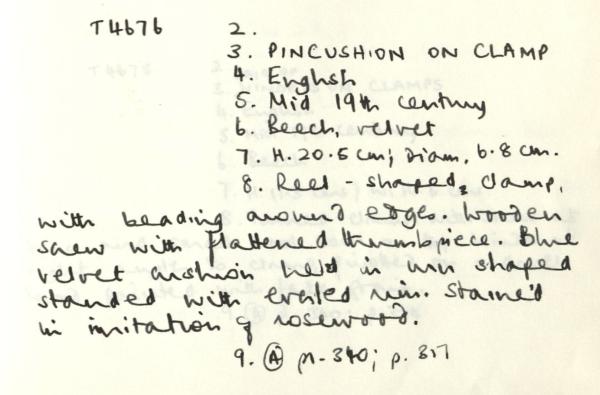 T4676 2.
3. PINCUSHION ON CLAMP
4. English
5. Mid 19th century
6. Beech, velvet
7. H. 20.5 cm; Diam. 6.8 cm.
8. Reel-shaped clamp,
with beading around edges. Wooden
screw with flattened thumbpiece. Blue
velvet cushion held in urn shaped
standed with everted rim. Stained
in imitation of rosewood.
9. Ⓐ pl. 340; p. 317